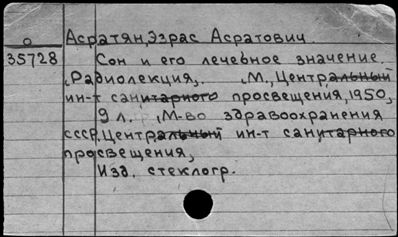 Асратян, Эзрас Асратович
о
35728
Сон и его лечебное значение
, Радиолекция,. , М., Центральный
ин-т санитарного просвещения, 1950,
9 л. , М-во здравоохранения
СССР, Центральный ин-т санитарного
просвещения,
Изд. стеклогр.